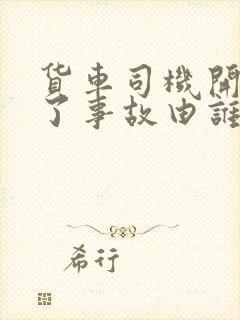 货车司機開
了事故由誰
希行